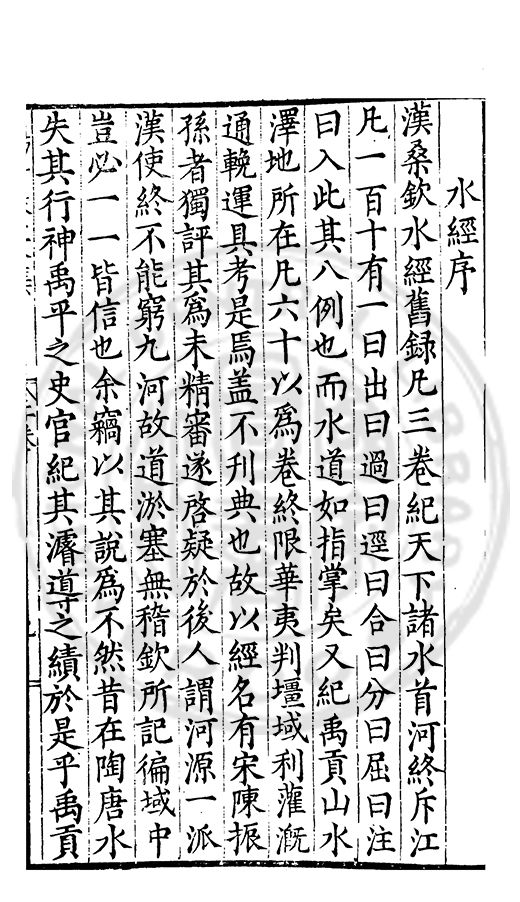 水經序
漢桑欽水經舊録凡三卷紀天下諸水首河終斥江
凡一百十有一曰出曰過曰逕曰合曰分曰屈曰注
曰入此其八例也而水道如指掌矣又紀禹貢山水
澤地所在凡六十以爲卷終限華夷判壃域利灌漑
通輓運具考是焉盖不刋典也故以經名有宋陳振
孫者獨評其爲未精審遂啓疑於後人謂河源一派
漢使終不能窮九河故道淤塞無稽欽所記徧域中
豈必一一皆信也余竊以其說爲不然昔在陶唐水
失其行神禹平之史官紀其濬導之績於是乎禹貢